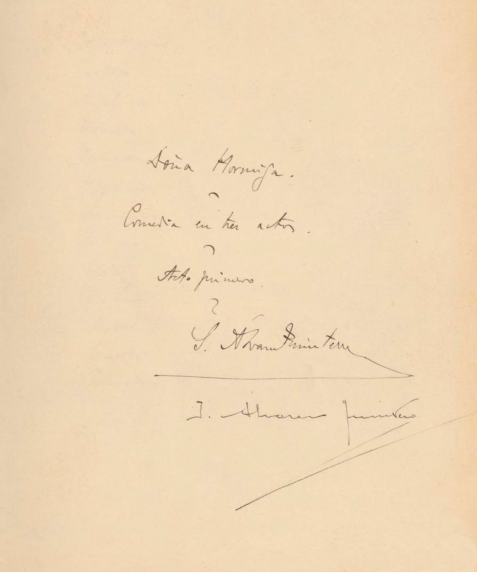 Doña Hormiga.
Comedia en tres actos.
Acto primero.
S. Álvarez Quintero
J. Álvarez Quintero